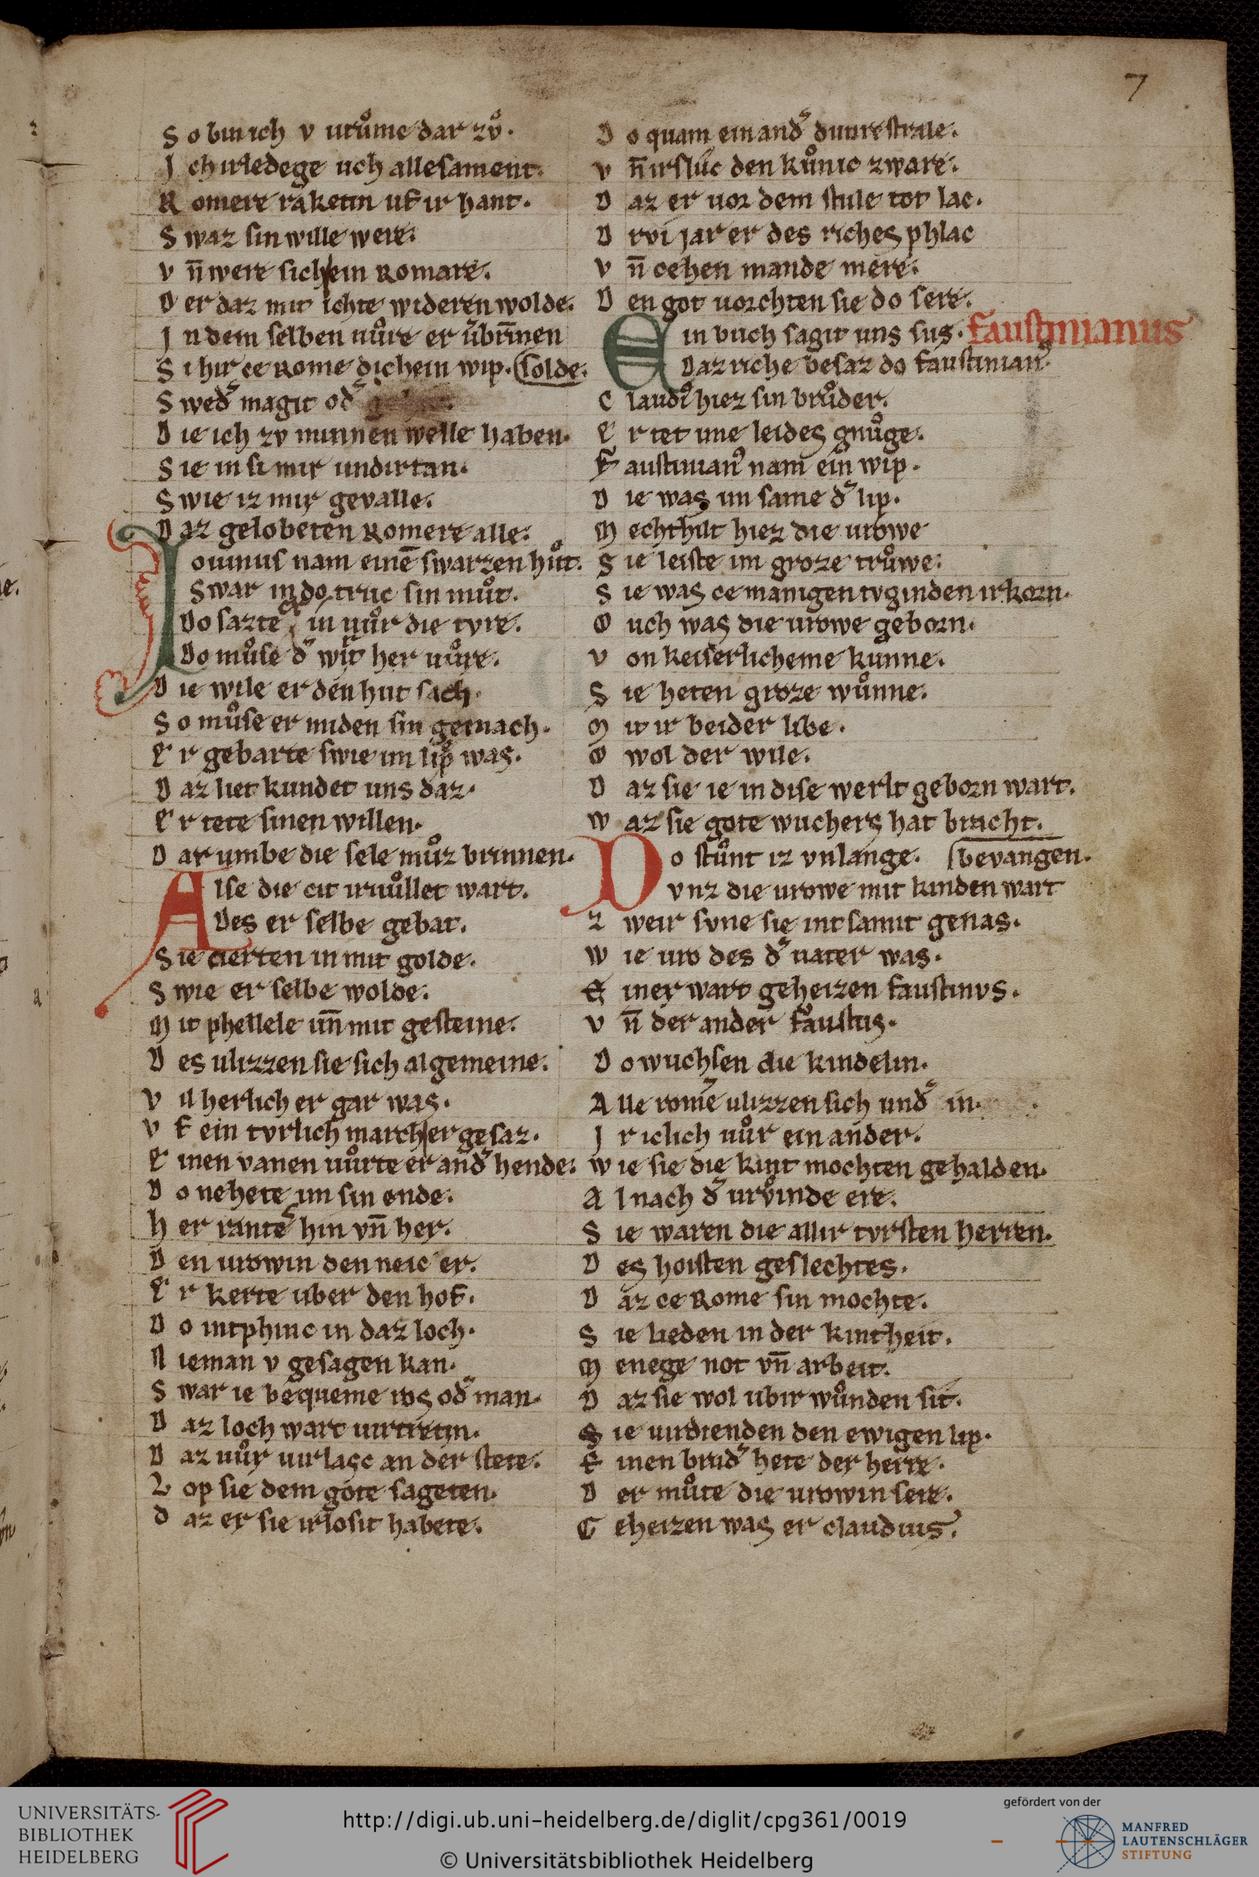 7
So bin ich v urůme dar zů.
Ich irledege uch allesament.
Romere raketin uf ir hant.
Swaz sin wille were.
vn̄ were sichein Romare.
Der daz mit ichte wideren wolde.
In dem selben uůre er u̓brīnen
Sihir ce Rome dichein wip. solde.
Swed̓ magit od̓
Die ich zv minnen welle haben.
Sie in si mir undirtan.
Swie iz mir gevalle.
Daz gelobeten Romere alle.
Iouinus nam einē swarzen hůt.
Swar in do truc sin můt.
Do sazte in uůr die tvre.
Do můse d̓ wirt her uůre.
Die wile er den hut sach.
So můse er miden sin gemach.
Er gebarte swie im lip was.
Daz liet kundet uns daz.
Er tete sinen willen.
Dar umbe die sele můz brinnen.
Alse die cit iruůllet wart.
Des er selbe gebat.
Sie cierten in mit golde.
Swie er selbe wolde.
Mit phellele un̄ mit gesteine.
Des ulizzen sie sich algemeine.
Vil herlich er gar was.
vf ein tvrlich march er gesaz.
Einen vanen uůrte er and̓ hende.
Do nehete im sin ende.
Her rante hin vn̄ her.
Den urowin den neic er.
Er kerte uber den hof.
Do intphinc in daz loch.
Nieman v gesagen kan.
Swar ie bequeme ros od̓ man.
Daz loch wart uirtretin.
Daz uůr uirlasc an der stete.
Lop sie dem gote sageten.
daz er sie irlosit habete.
Do quam ein and̓ dunrestrale.
vn̄ irsluc den kůnic zware.
Daz er uor dem stule tot lac.
Drvi jar er des riches phlac
Vn̄ cehen mande mere.
Den got uorchten sie do sere.
Ein buch sagit uns sus. faustinianus
Daz riche besaz do faustinian̓.
Claudi̓ hiez sin brůder.
Er tet ime leides gnůge.
Faustinian̓ nam ein wip.
Die was im same d̓ lip.
Mechthilt hiez die urowe
Sie leiste im groze trůwe.
Sie was ce manigen tvginden irkorn.
Ouch was die urowe geborn.
Von keiserlicheme kunne.
Sie heten groze wůnne.
Mit ir beider libe.
O wol der wile.
Daz sie ie in dise werlt geborn wart.
Waz sie gote wuchers hat bracht.
Do stůnt iz vnlange. bevangen.
vnz die urowe mit kinden wart
Zweir svne sie intsamt genas.
Wie uro des d̓ uater was.
Einer wart geheizen faustinvs.
Vn̄ der ander faustus.
Do wuchsen die kindelin.
Alle romē ulizzen sich und̓ in.
Iriclich uůr ein ander.
Wie sie die kint mochten gehalden.
Al nach d̓ urůinde ere.
Sie waren die allir tvrsten herren.
Des hoisten geslechtes.
Daz ce Rome sin mochte.
Sie lieden in der kintheit.
Menege not vn̄ arbeit.
Daz sie wol ubir wůnden sit.
Sie uirdienden den ewigen lip.
Einen brud̓ hete der herre.
Der můte die urowin sere.
Geheizen was er claudius.
UNIVERSITÄTS-
BIBLIOTHEK
HEIDELBERG
http://digi.ub.uni-heidelberg.de/diglit/cpg361/0019
© Universitätsbibliothek Heidelberg
gefördert von der
MANFRED
LAUTENSCHLÄGER
STIFTUNG